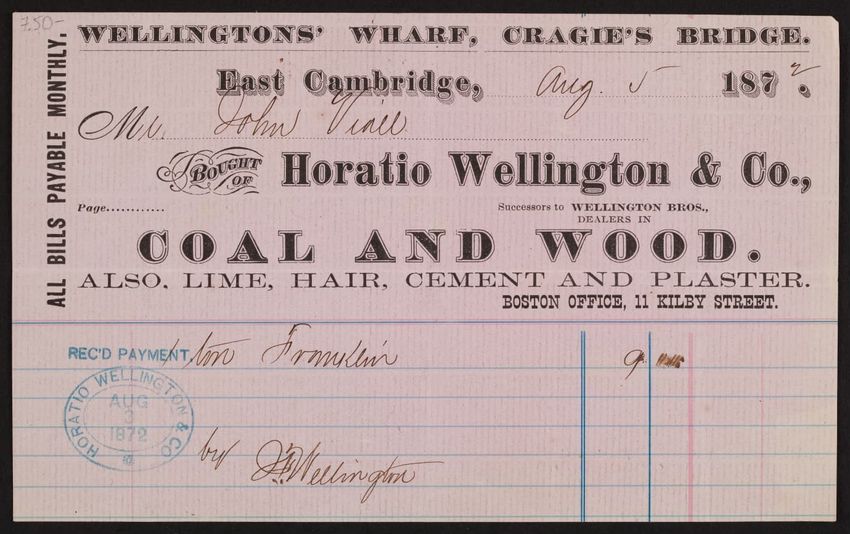 7.50-
ALL BILLS PAYABLE MONTHLY.
WELLINGTONS' WHARF, CRAGIE'S BRIDGE.
East Cambridge, Aug. 5 1872.
Mr. John Viall
BOUGHT OF Horatio Wellington & Co.,
Page............ Successors to WELLINGTON BROS.,
DEALERS IN
COAL AND WOOD.
ALSO, LIME, HAIR, CEMENT AND PLASTER.
BOSTON OFFICE, 11 KILBY STREET.
REC'D PAYMENT, 1 ton Franklin 9
HORATIO WELLINGTON & CO
AUG
3
1872
by
Wellington